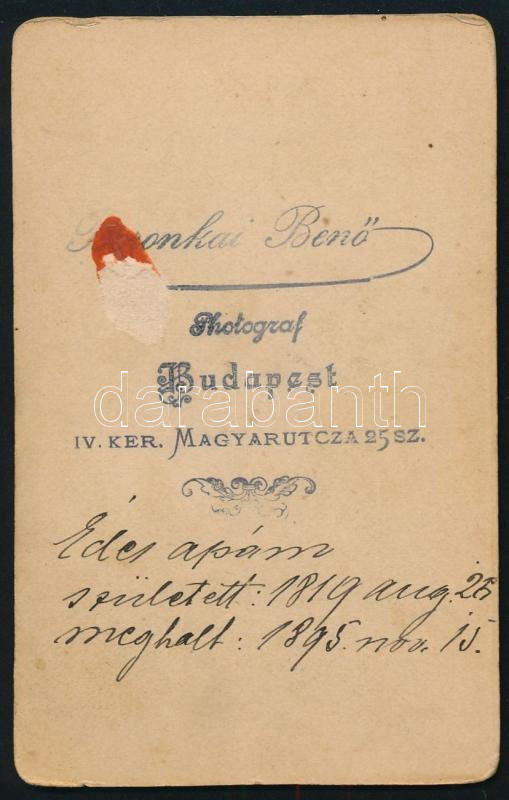 Benő
Photograf
Budapest
darabanth
IV. KER. MAGYARUTCZA 25 SZ.
Édes apám
született: 1819 aug. 28
meghalt: 1895. nov. 15.